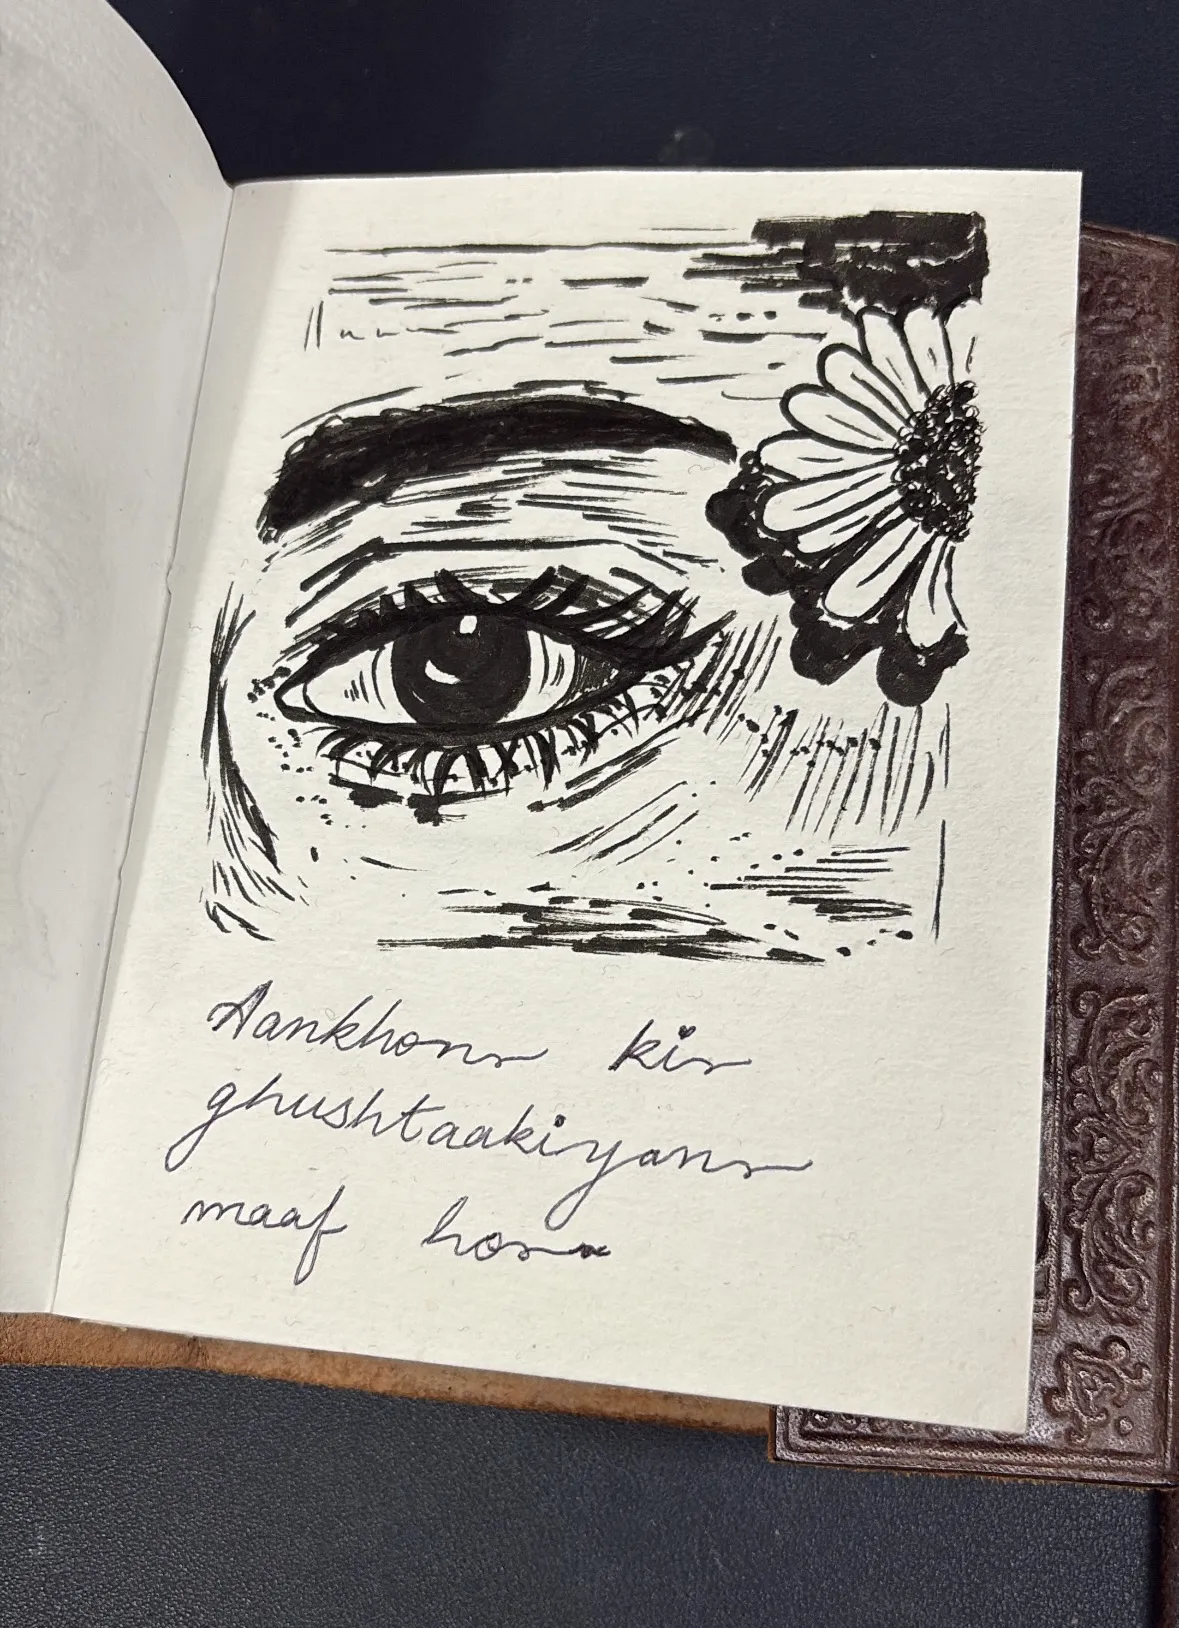 Aankhon ki
ghushtaakiyan
maaf ho